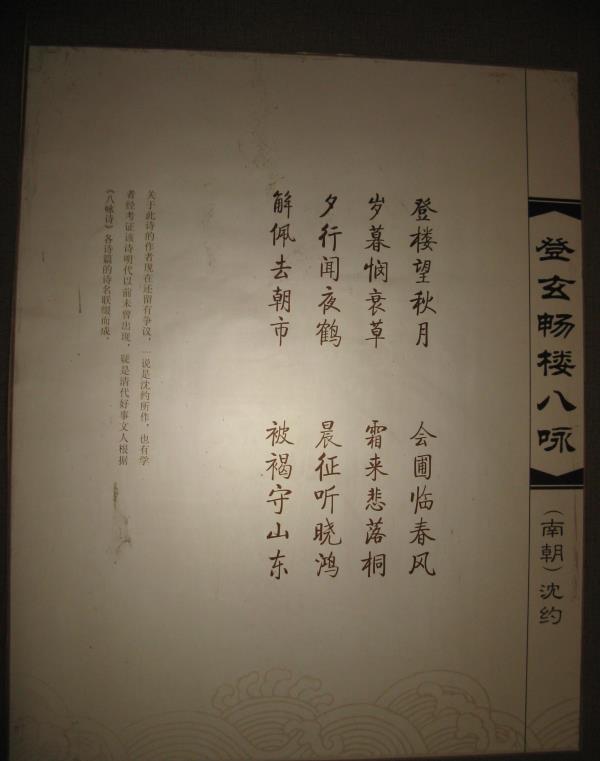 登玄畅楼八咏
（南朝）沈约
登楼望秋月 会圃临春风
岁暮悯衰草 霜来悲落桐
夕行闻夜鹤 晨征听晓鸿
解佩去朝市 被褐守山东
关于此诗的作者现在还留有争议，一说是沈约所作，也有学
者经考证该诗明代以前未曾出现，疑是清代好事文人根据
《八咏诗》各诗篇的诗名联缀而成。